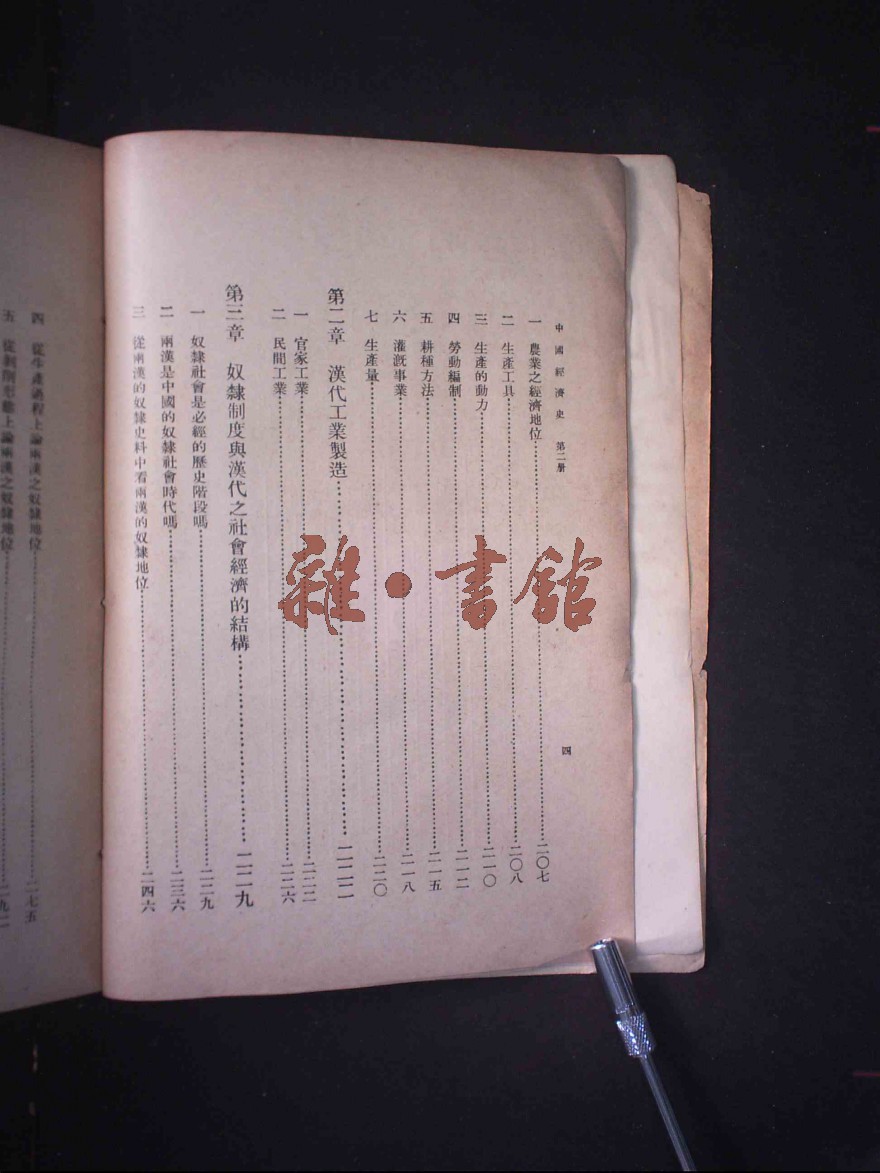 中國經濟史 第二册
四
一 農業之經濟地位………二〇七
二 生產工具………二〇八
三 生產的動力………二一〇
四 勞動編制………二一二
五 耕種方法………二一五
六 灌漑事業………二一八
七 生產量………二二〇
第二章 漢代工業製造………二二二
一 官家工業………二二二
二 民間工業………二二六
第三章 奴隸制度與漢代之社會經濟的結構………二二九
一 奴隸社會是必經的歷史階段嗎………二二九
二 兩漢是中國的奴隸社會時代嗎………二三六
三 從兩漢的奴隸史料中看兩漢的奴隸地位………二四六
四 從生產過程上論兩漢之奴隸地位………二七五
五 從剝削形態上論兩漢之奴隸地位………二九二
雜·書館